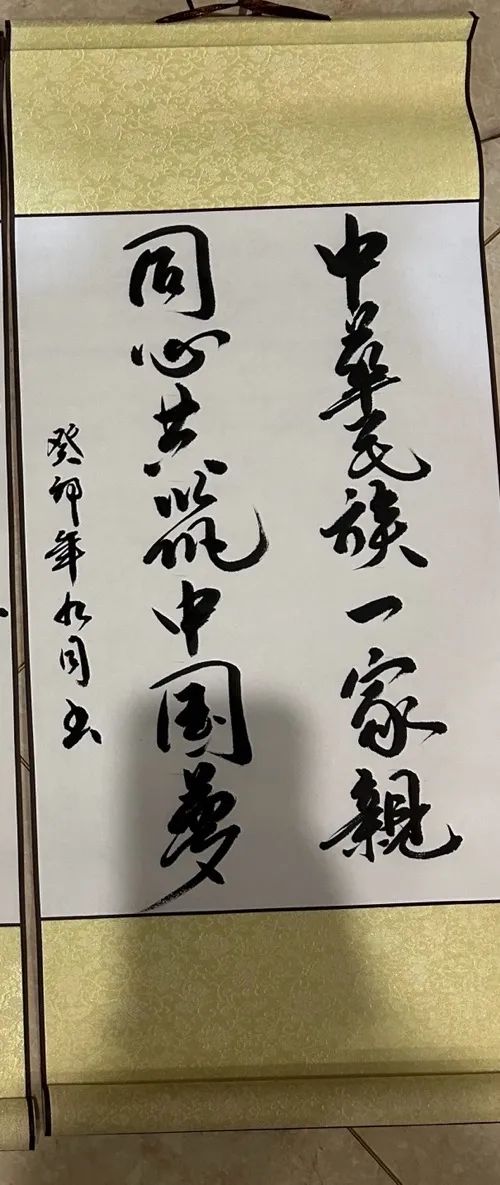 中華民族一家親
同心共筑中国夢
癸卯年九月书